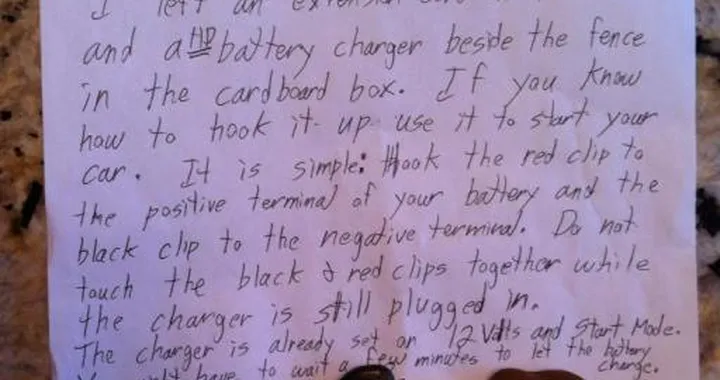 I left an extension
and a HD battery charger beside the fence
in the cardboard box. If you know
how to hook it up use it to start your
car. It is simple: Hook the red clip to
the positive terminal of your battery and the
black clip to the negative terminal. Do not
touch the black & red clips together while
the charger is still plugged in.
The charger is already set on 12 Volts and Start Mode.
have to wait a few minutes to let the battery
charge.